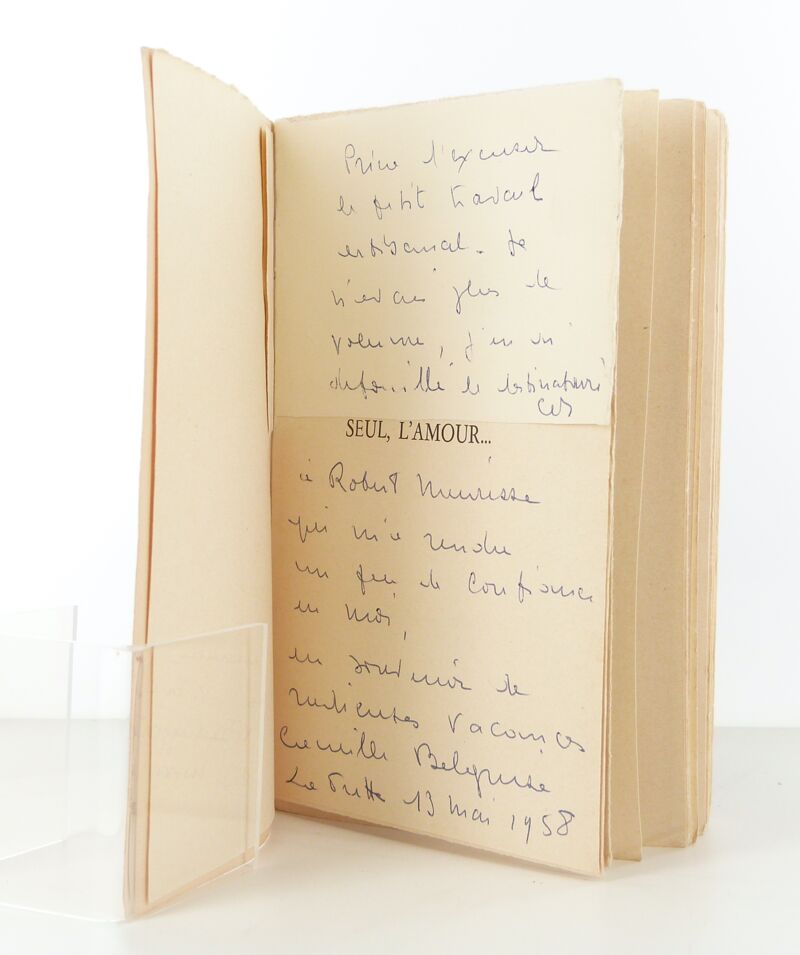 Prière d'excuser
le petit travail
artisanal. Je
n'avais plus de
volume, j'en ai
dépouillé le destinataire
SEUL, L'AMOUR...
à Robert Meurisse
qui m'a rendu
un peu de confiance
en moi,
en souvenir de
radieuses vacances
Camille Belguise
La Frette 13 mai 1958